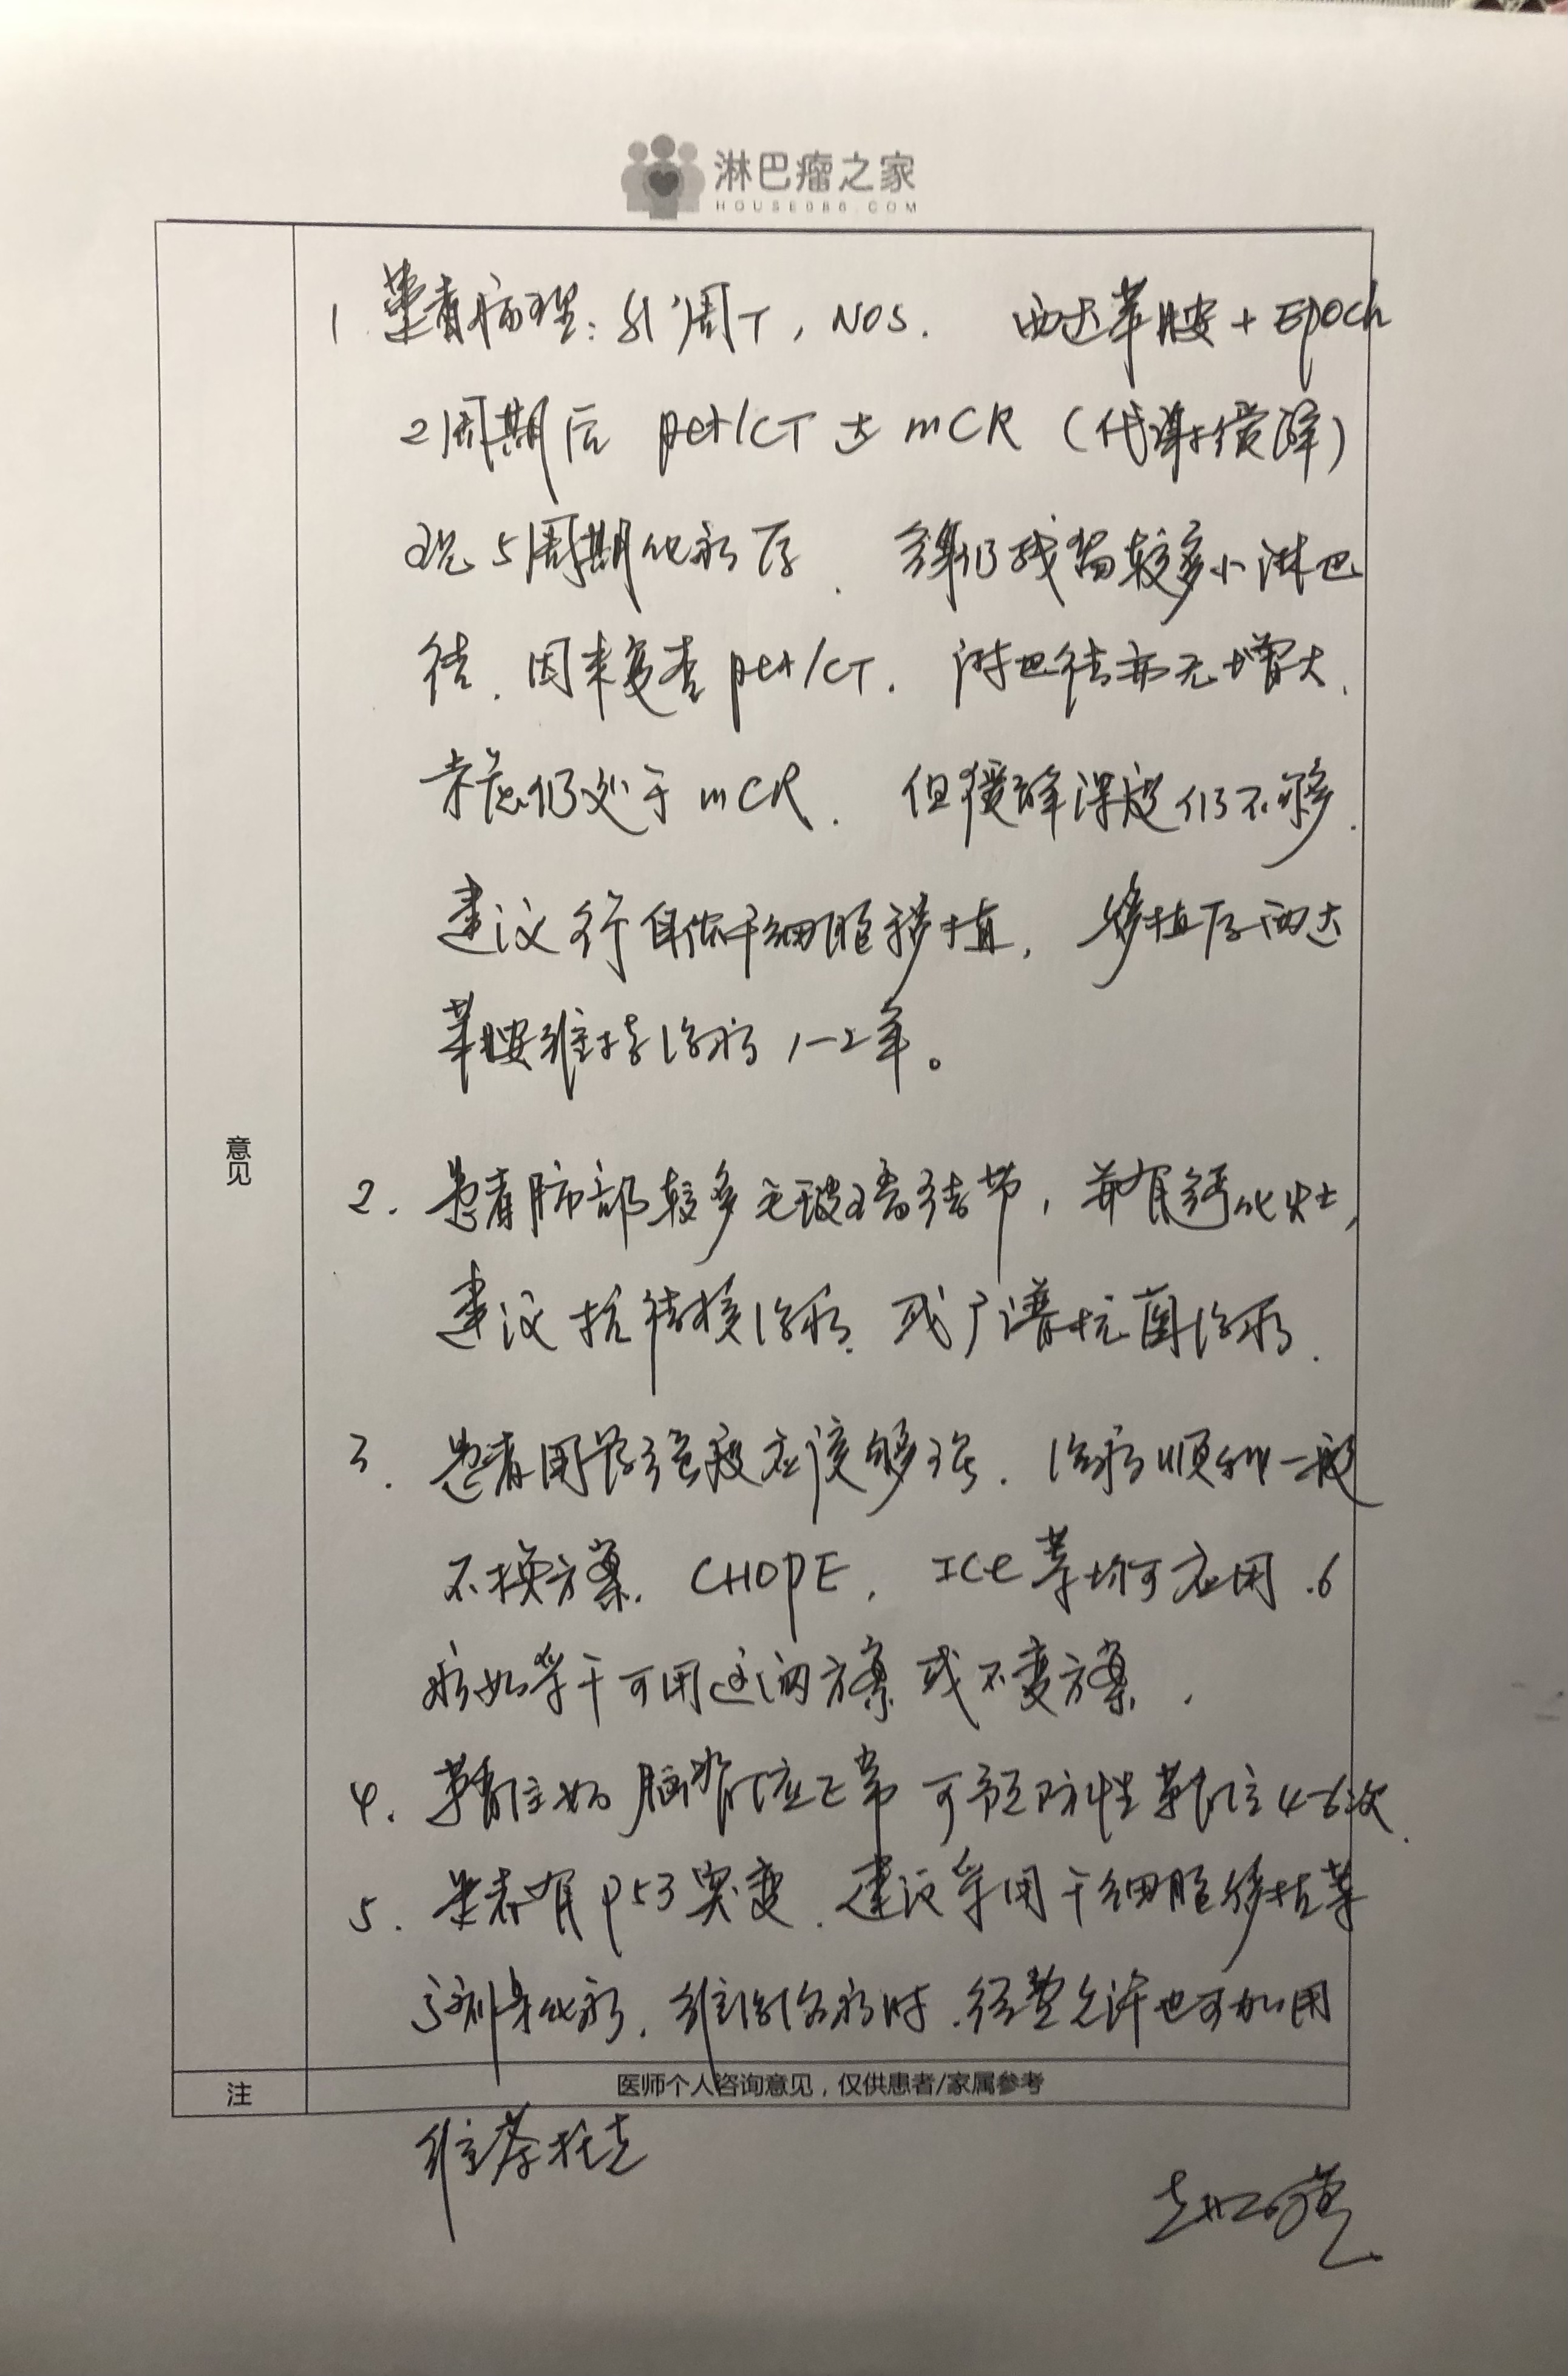 淋巴瘤之家
HOUSE086.COM
意见
1. 患者病理：外周T，NOS. 西达苯胺+EPOCH
2周期后 pet/CT 达 mCR（代谢缓解）
现5周期化疗后. 结果仍残留较多小淋巴
结. 因未复查pet/CT. 淋巴结亦无增大.
考虑仍处于mCR. 但缓解深度仍不够.
建议行自体干细胞移植, 移植后西达
苯胺维持治疗1-2年。
2. 患者肺部较多毛玻璃结节, 并有钙化灶,
建议抗结核治疗. 或广谱抗菌治疗.
3. 患者用药强度应该够强. 治疗顺利一般
不换方案. CHOPE, ICE等均可应用. 6
疗如等干可用这两方案或不变方案.
4. 鞘注如脑脊液正常可预防性鞘注4-6次.
5. 患者有p53突变. 建议采用干细胞移植等
高剂量化疗. 维持治疗时. 经费允许也可加用
注 医师个人咨询意见，仅供患者/家属参考